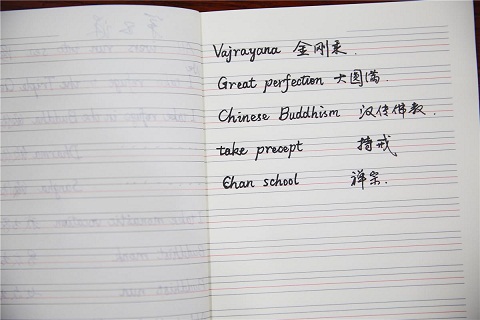 Vajrayana 金刚乘.
Great perfection 大圆满.
Chinese Buddhism 汉传佛教.
take precept 持戒
Chan school 禅宗.